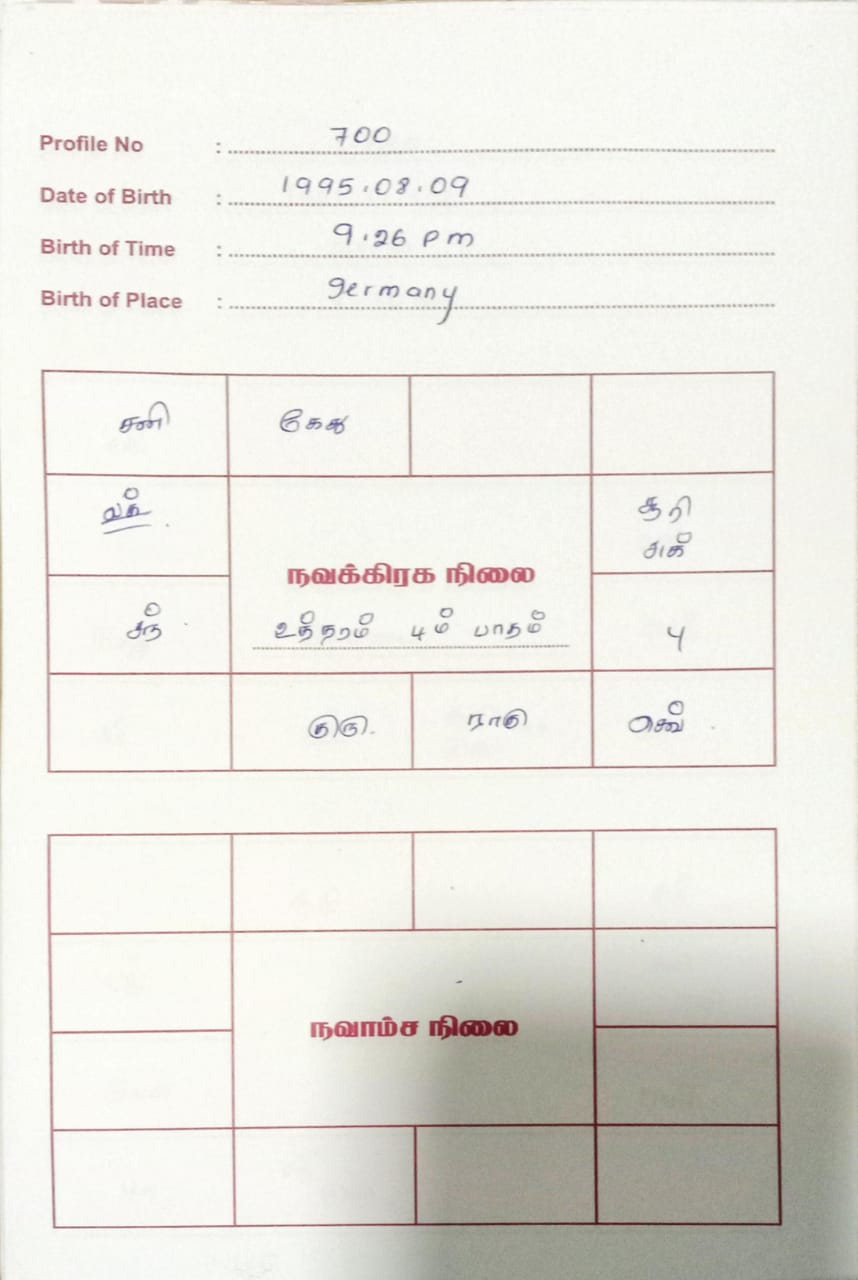 Profile No : 700
Date of Birth : 1995.08.09
Birth of Time : 9.26 pm
Birth of Place : germany
சனி கேது
லக்
சூரி
சுக்
நவக்கிரக நிலை
சந்
உத்தரம் ம் பாதம்
பு
குரு. ராகு செவ்
நவாம்ச நிலை